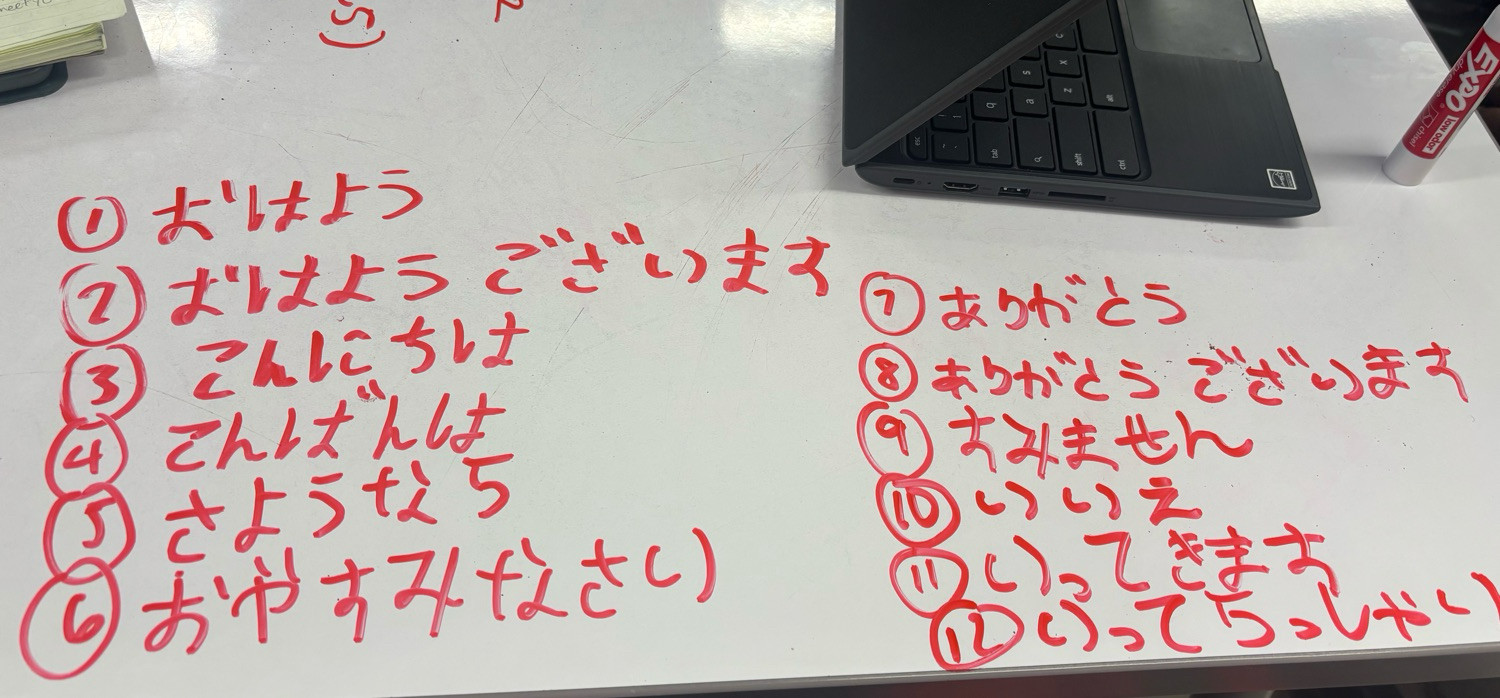 ① おはよう
② おはよう ございます
③ こんにちは
④ こんばんは
⑤ さようなら
⑥ おやすみなさい
⑦ ありがとう
⑧ ありがとう ございます
⑨ すみません
⑩ いいえ
⑪ いってきます
⑫ いってらっしゃい
EXPO
low odor
chisel
esc
tab
shift
ctrl
alt
q
a
z
s
x
c